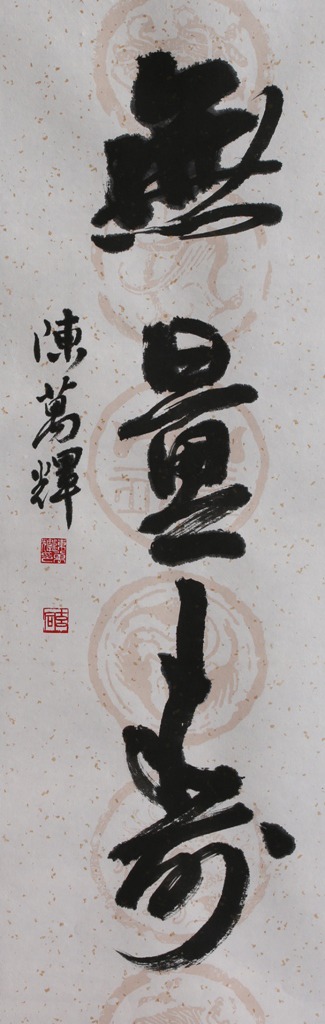 無量壽
陳萬輝